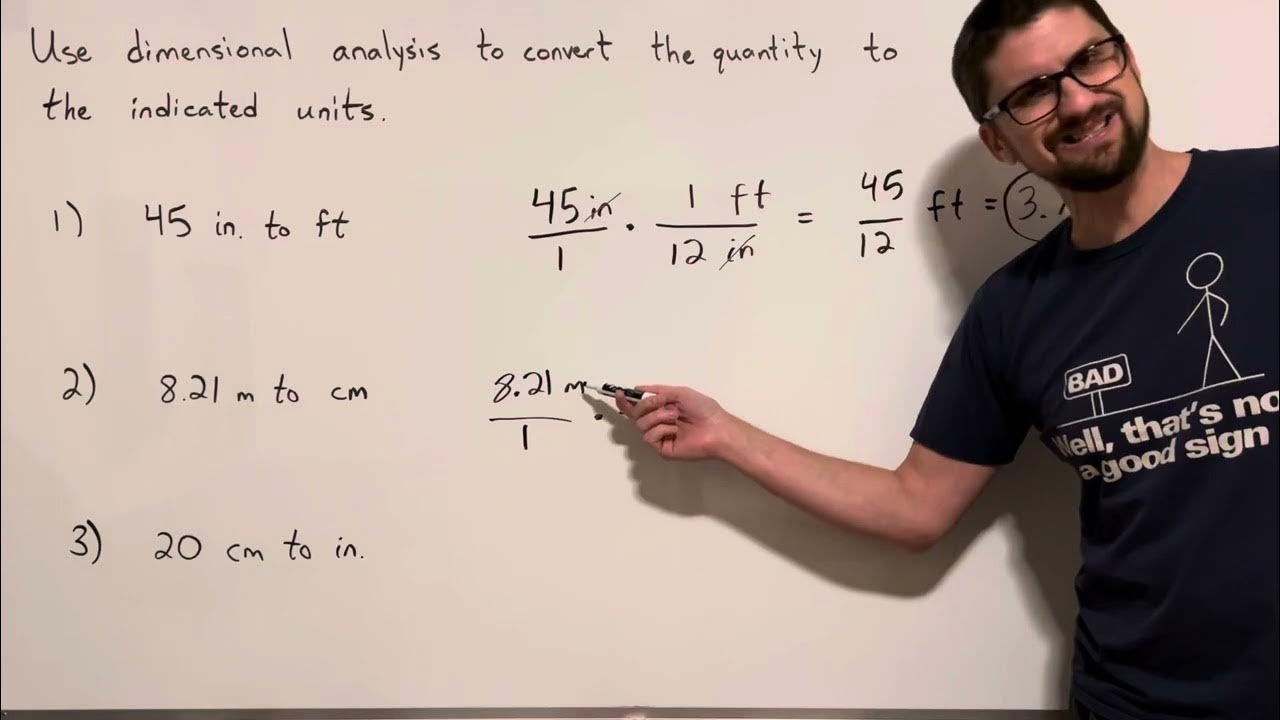 Use dimensional analysis to convert the quantity to
the indicated units.
1) 45 in. to ft
45 in / 1 · 1 ft / 12 in = 45 / 12 ft = 3.
2) 8.21 m to cm
8.21 m / 1 ·
3) 20 cm to in.
BAD
Well, that's
a good sign